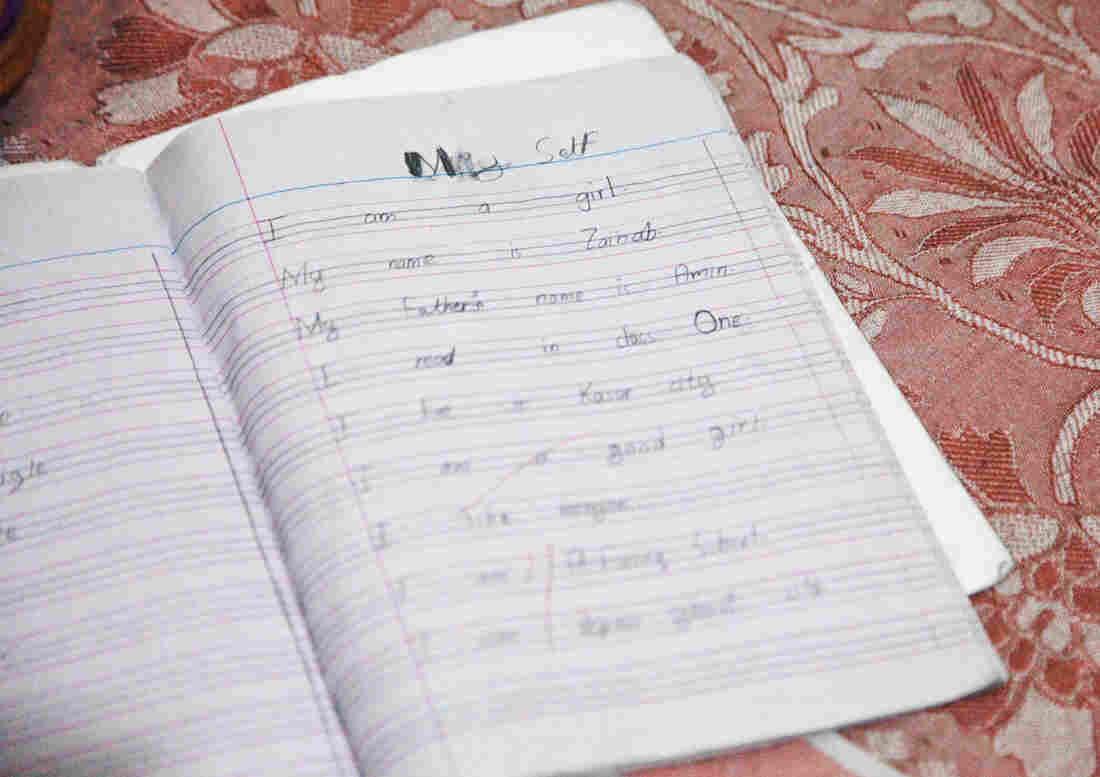 My Self
I am a girl
My name is Zainab.
My Father's name is Amin.
I read in class One
I live in Kasur city
I am a good girl.
I like mangoe
I am
I am